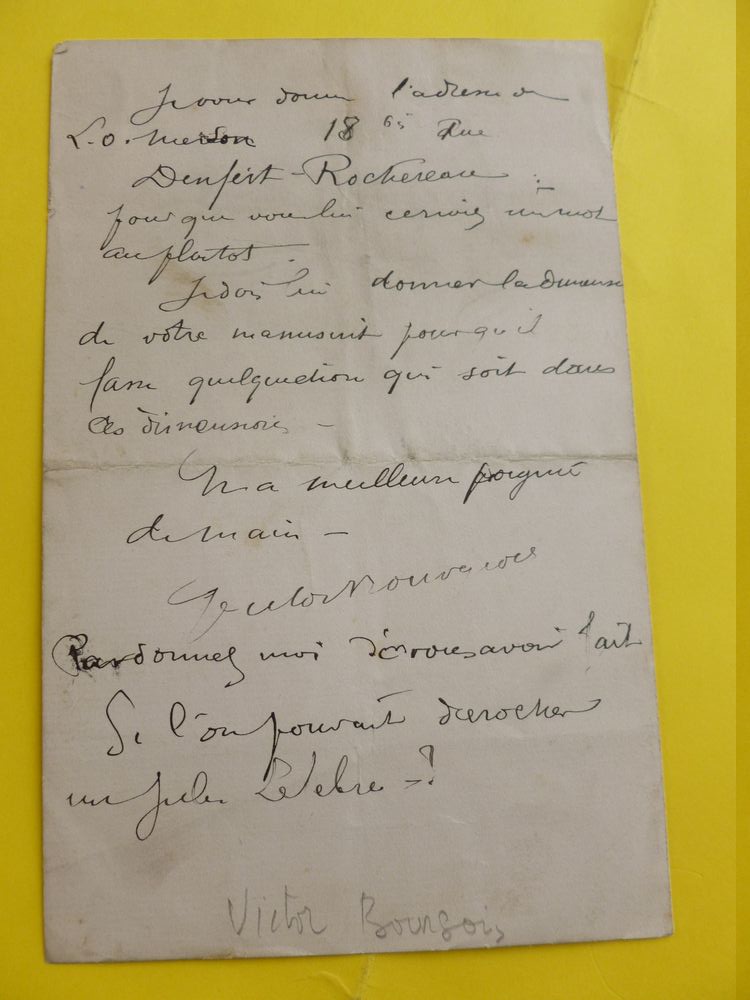 Je vous donne l'adresse de
L.O. Merson 18 bis Rue
Denfert-Rochereau :
pour que vous lui écriviez un mot
au plutot.
Je dois lui donner la dimension
de votre manuscrit pour qu'il
fasse quelque chose qui soit dans
ces dimensions –
Ma meilleure poignée
de main –
Pardonnez moi de vous avoir fait
Si l'on pouvait décrocher
un Jules Lefebre – ?
Victor Bourgois